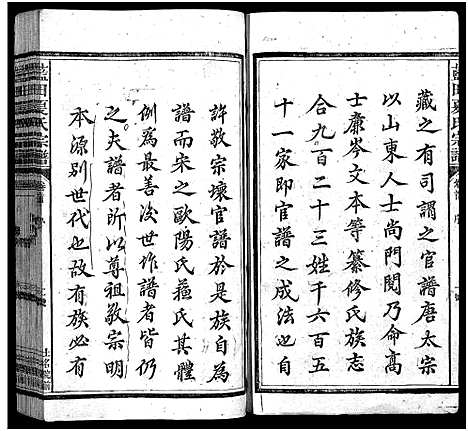 藏之有司謂之官譜唐太宗
以山東人士尚門閥乃命高
士廉岑文本等纂修氏族志
合九百二十三姓千六百五
十一家即官譜之成法也自
許敬宗壞官譜於是族自為
譜而宋之歐陽氏蘇氏其體
例為最善後世作譜者皆仍
之夫譜者所以尊祖敬宗明
本源別世代也故有族必有
藍田夏氏宗譜
藍田夏氏宗譜